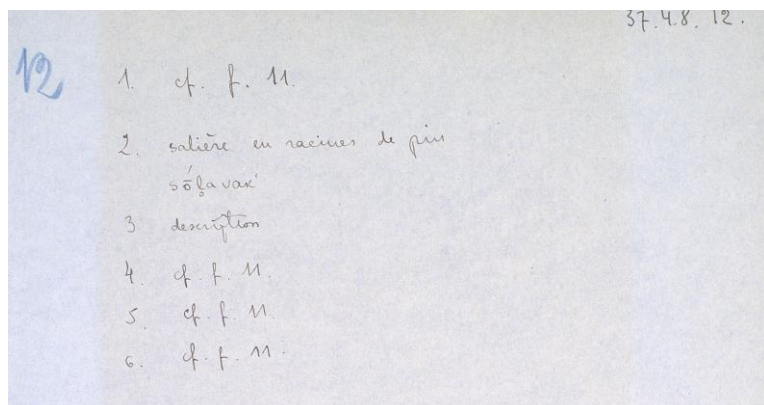 37.4.8.12.
12
1. cf. f. 11.
2. salière en racines de pin
sṓl̥avak'
3 description
4. cf. f. 11.
5. cf. f. 11.
6. cf. f. 11.